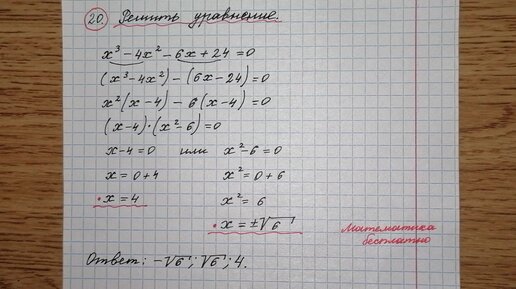 20. Решить уравнение.
x³ – 4x² – 6x + 24 = 0
(x³ – 4x²) – (6x – 24) = 0
x²(x – 4) – 6(x – 4) = 0
(x – 4)·(x² – 6) = 0
x – 4 = 0 или x² – 6 = 0
x = 0 + 4 x² = 0 + 6
x = 4 x² = 6
x = ±√6
Математика
бесплатно
Ответ: –√6; √6; 4.